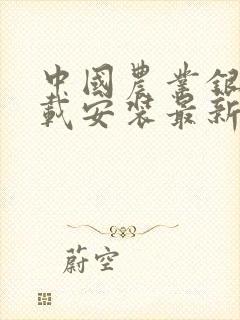 中國農業銀
載安裝最新
蔚空